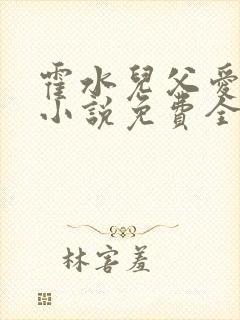 霍水兒父愛
小說免費全
林害羞